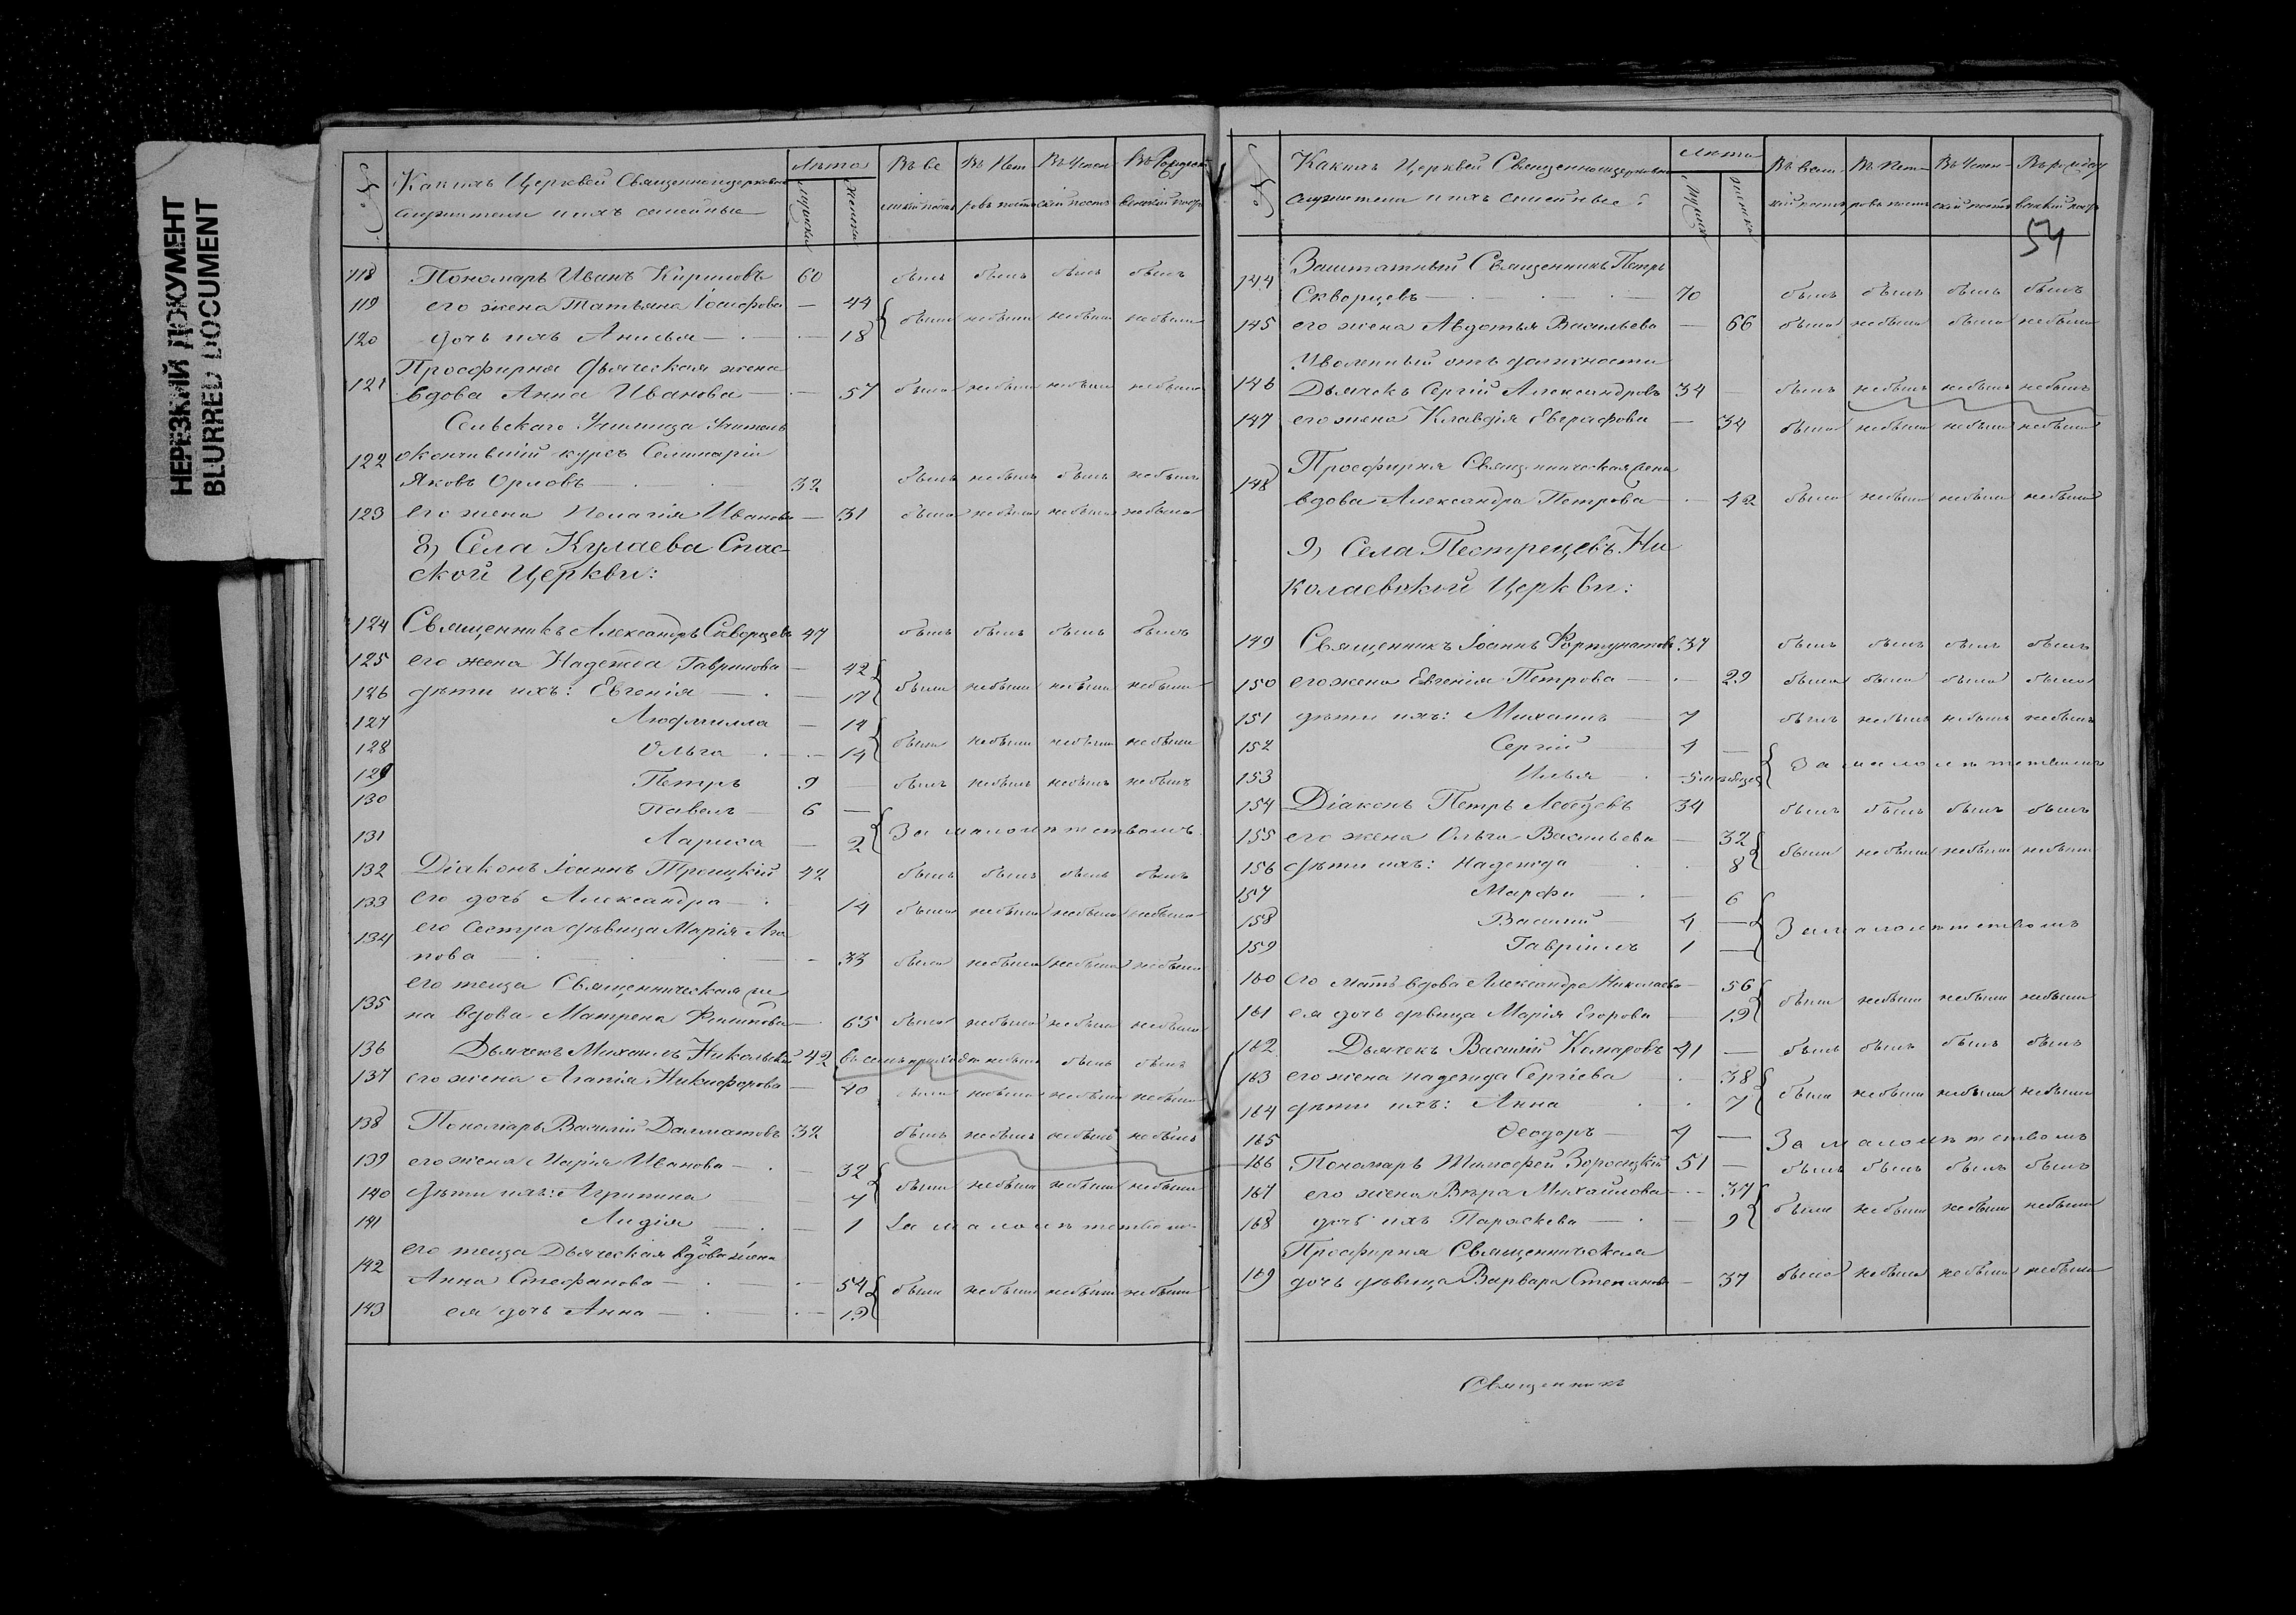 НЕРЕЗКИЙ ДОКУМЕНТ
BLURRED DOCUMENT
№ Какихъ Церквей Священноцерковно лѣта Въ Ве Въ Пет Въ Успен Въ Рождест
служители и ихъ семейные мужска женска ликій постъ ровъ постъ скій постъ венскій постъ
118 Пономарь Иванъ Кириловъ 60 былъ былъ былъ былъ
119 его жена Татьяна Іосифова — 44
120 дочь ихъ Анисья — 18 были небыли небыли небыли
Просфирня Дьяческая жена
121 вдова Анна Иванова — 57 была небыла небыла небыла
Сельскаго Училища Учитель
122 окончившій курсъ Семинаріи
Яковъ Орловъ — 32 былъ небылъ былъ небылъ
123 его жена Пелагія Иванова — 31 была небыла небыла небыла
8) Села Кулаева Спас-
ской Церкви:
124 Священникъ Александръ Скворцевъ 47 былъ былъ былъ былъ
125 его жена Надежда Гаврилова — 42
126 дѣти ихъ: Евгенія — 17 были небыли небыли небыли
127 Людмилла — 14
128 Ольга — 14 были небыли небыли небыли
129 Петръ 9 — былъ небылъ небылъ небылъ
130 Павелъ — 6 —
131 Лариса — 2 За малолѣтствомъ
132 Діаконъ Іоаннъ Троицкій 42 былъ былъ былъ былъ
133 его дочь Александра — 14 была небыла небыла небыла
134 его Сестра дѣвица Марія Ага
пова — 33 была небыла небыла небыла
его теща Священническая же
135 на вдова Матрена Филипова — 65 была небыла небыла небыла
136 Дьячекъ Михаилъ Никольскій 42 былъ былъ
137 его жена Агапія Никифорова — 40 была небыла небыла небыла
138 Пономарь Василій Далматовъ 32 былъ небылъ небылъ небылъ
139 его жена Марія Иванова — 32
140 дѣти ихъ: Агрипина 7 были небыли небыли небыли
141 Лидія — 1 За малолѣтствомъ
его теща Дьяческая вдова 2 жена 1
142 Анна Стефанова — 54
143 ея дочь Анна — 19 были небыли небыли небыли
№ Какихъ Церквей Священноцерковно лѣта Въ Вели Въ Пет Въ Успен Въ рождест
служители и ихъ семейные: мужск женска кій постъ ровъ постъ скій постъ венскій постъ
54
Заштатный Священникъ Петръ
144 Скворцевъ — 70 былъ былъ былъ былъ
145 его жена Авдотья Васильева — 66 была небыла была небыла
Уволенный отъ должности
146 Дьячекъ Сергій Александровъ 34 — былъ небылъ небылъ небылъ
147 его жена Клавдія Евграфова — 34 была небыла небыла небыла
Просфирня Священническая жена
148 вдова Александра Петрова — 42 была небыла небыла небыла
9) Села Пестрецевъ Ни
колаевской Церкви:
149 Священникъ Іоаннъ Фортунатовъ 37 былъ былъ былъ былъ
150 его жена Евгенія Петрова — 29 была была была была
151 дѣти ихъ: Михаилъ — 7 былъ небылъ небылъ небылъ
152 Сергій 4 —
153 Илья 5 мѣсяцевъ За малолѣтствомъ
154 Діаконъ Петръ Лебедевъ 34 былъ былъ былъ былъ
155 его жена Ольга Васильева — 32
156 дѣти ихъ: Надежда 8 были небыли небыли небыли
157 Марфа — 6
158 Василій — 4 —
159 Гавріилъ 1 — За малолѣтствомъ
160 его мать вдова Александра Николаева — 56
161 ея дочь дѣвица Марія Егорова — 19 были небыли небыли небыли
162 Дьячекъ Василій Комаровъ 41 — былъ былъ былъ былъ
163 его жена Надежда Сергіева 38
164 дѣти ихъ: Анна 7 были небыли небыли небыли
165 Ѳеодоръ — 4 — За малолѣтствомъ
166 Пономарь Тимофей 51 — былъ былъ былъ былъ
167 его жена Вѣра Михайлова — 37
168 дочь ихъ Параскева — 9 были небыли небыли небыли
Просфирня Священническая
169 дочь дѣвица Варвара Степанова — 37 была небыла небыла небыла
Священникъ